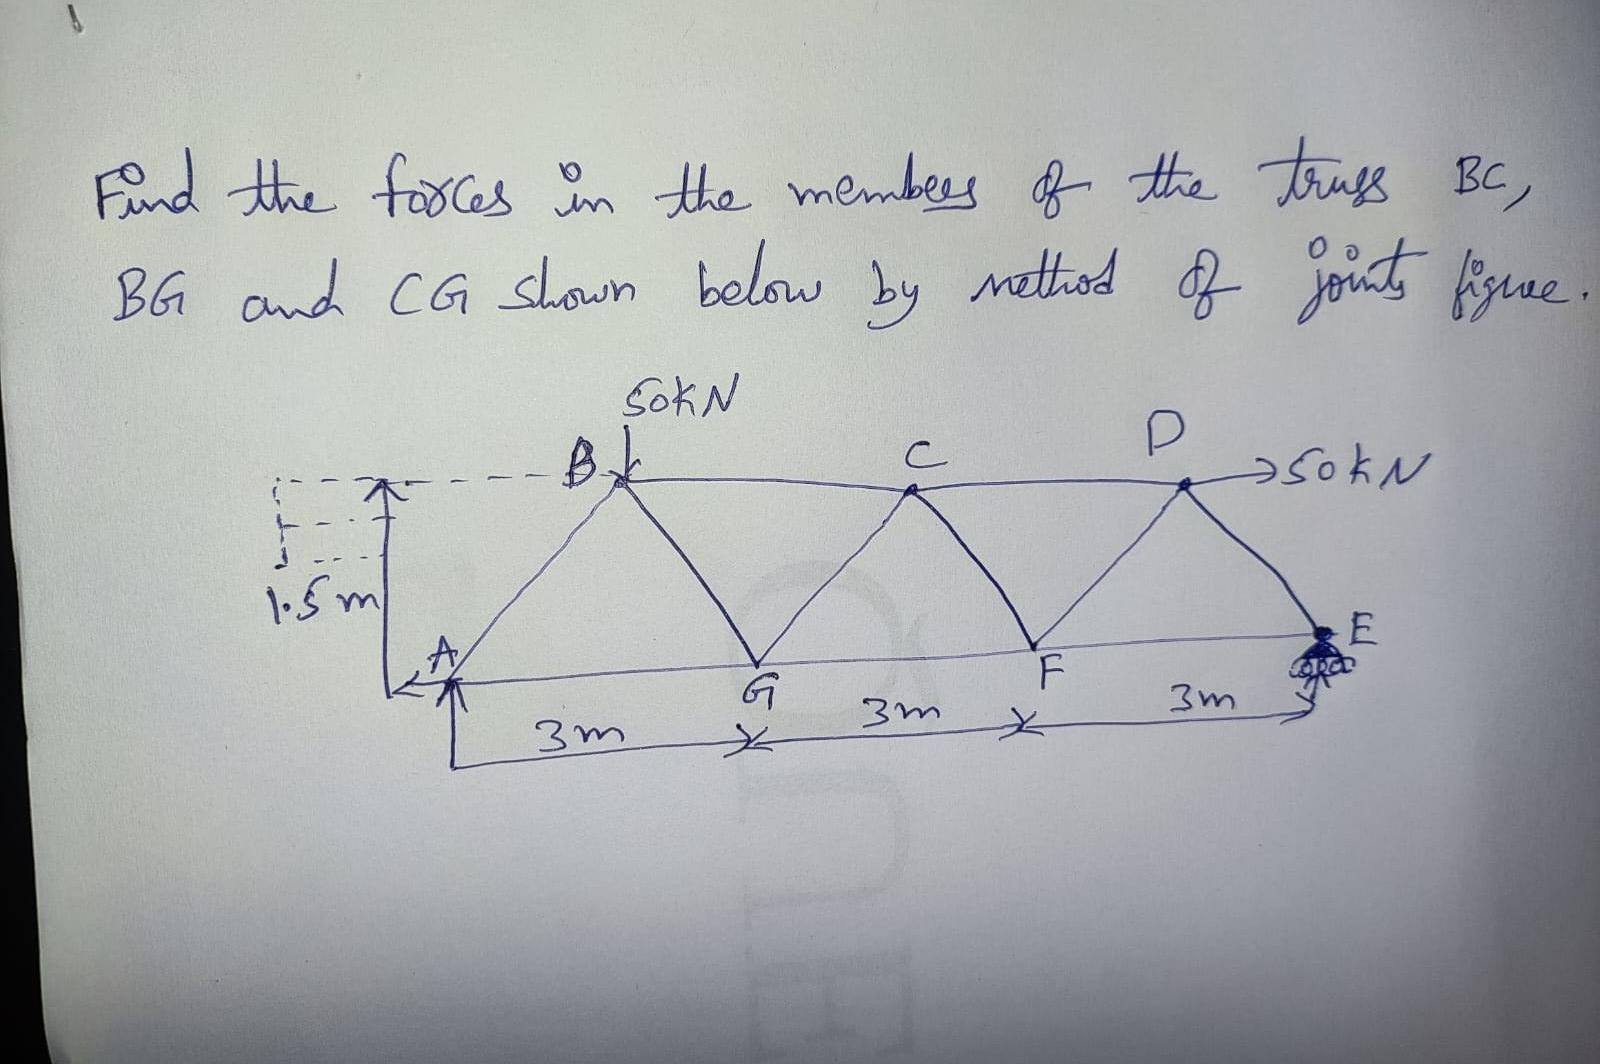 Find the forces in the members of the truss BC,
BG and CG shown below by method of joints figure.
50kN
B C D 50kN
1.5m
A G F E
3m 3m 3m